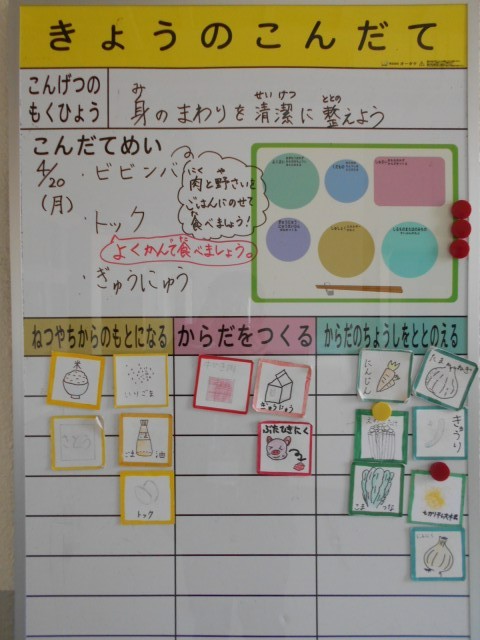 きょうのこんだて
こんげつの
もくひょう
身のまわりを清潔に整えよう
み
せいけつ
ととの
こんだてめい
4/20
(月)
・ビビンバ
肉と野さいを
ごはんにのせて
食べましょう!
にく
や
た
・トック
よくかんで食べましょう。
・ぎゅうにゅう
ねつやちからのもとになる
からだをつくる
からだのちょうしをととのえる
米
いりごま
さとう
ごま油
トック
ぎゅうにゅう
ぶたひきにく
にんじん
たまねぎ
きゅうり
こまつな